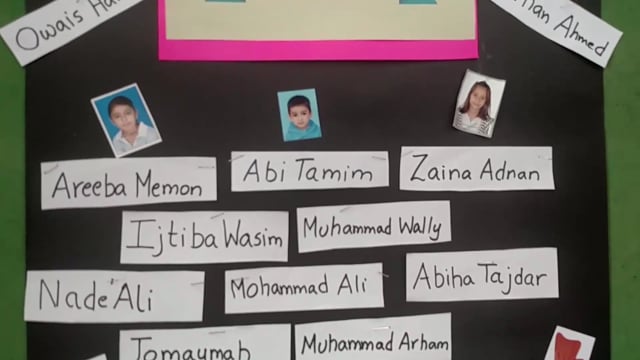 Owais
Ahmed
Areeba Memon
Abi Tamim
Zaina Adnan
Ijtiba Wasim
Muhammad Wally
Nade'Ali
Mohammad Ali
Abiha Tajdar
Muhammad Arham